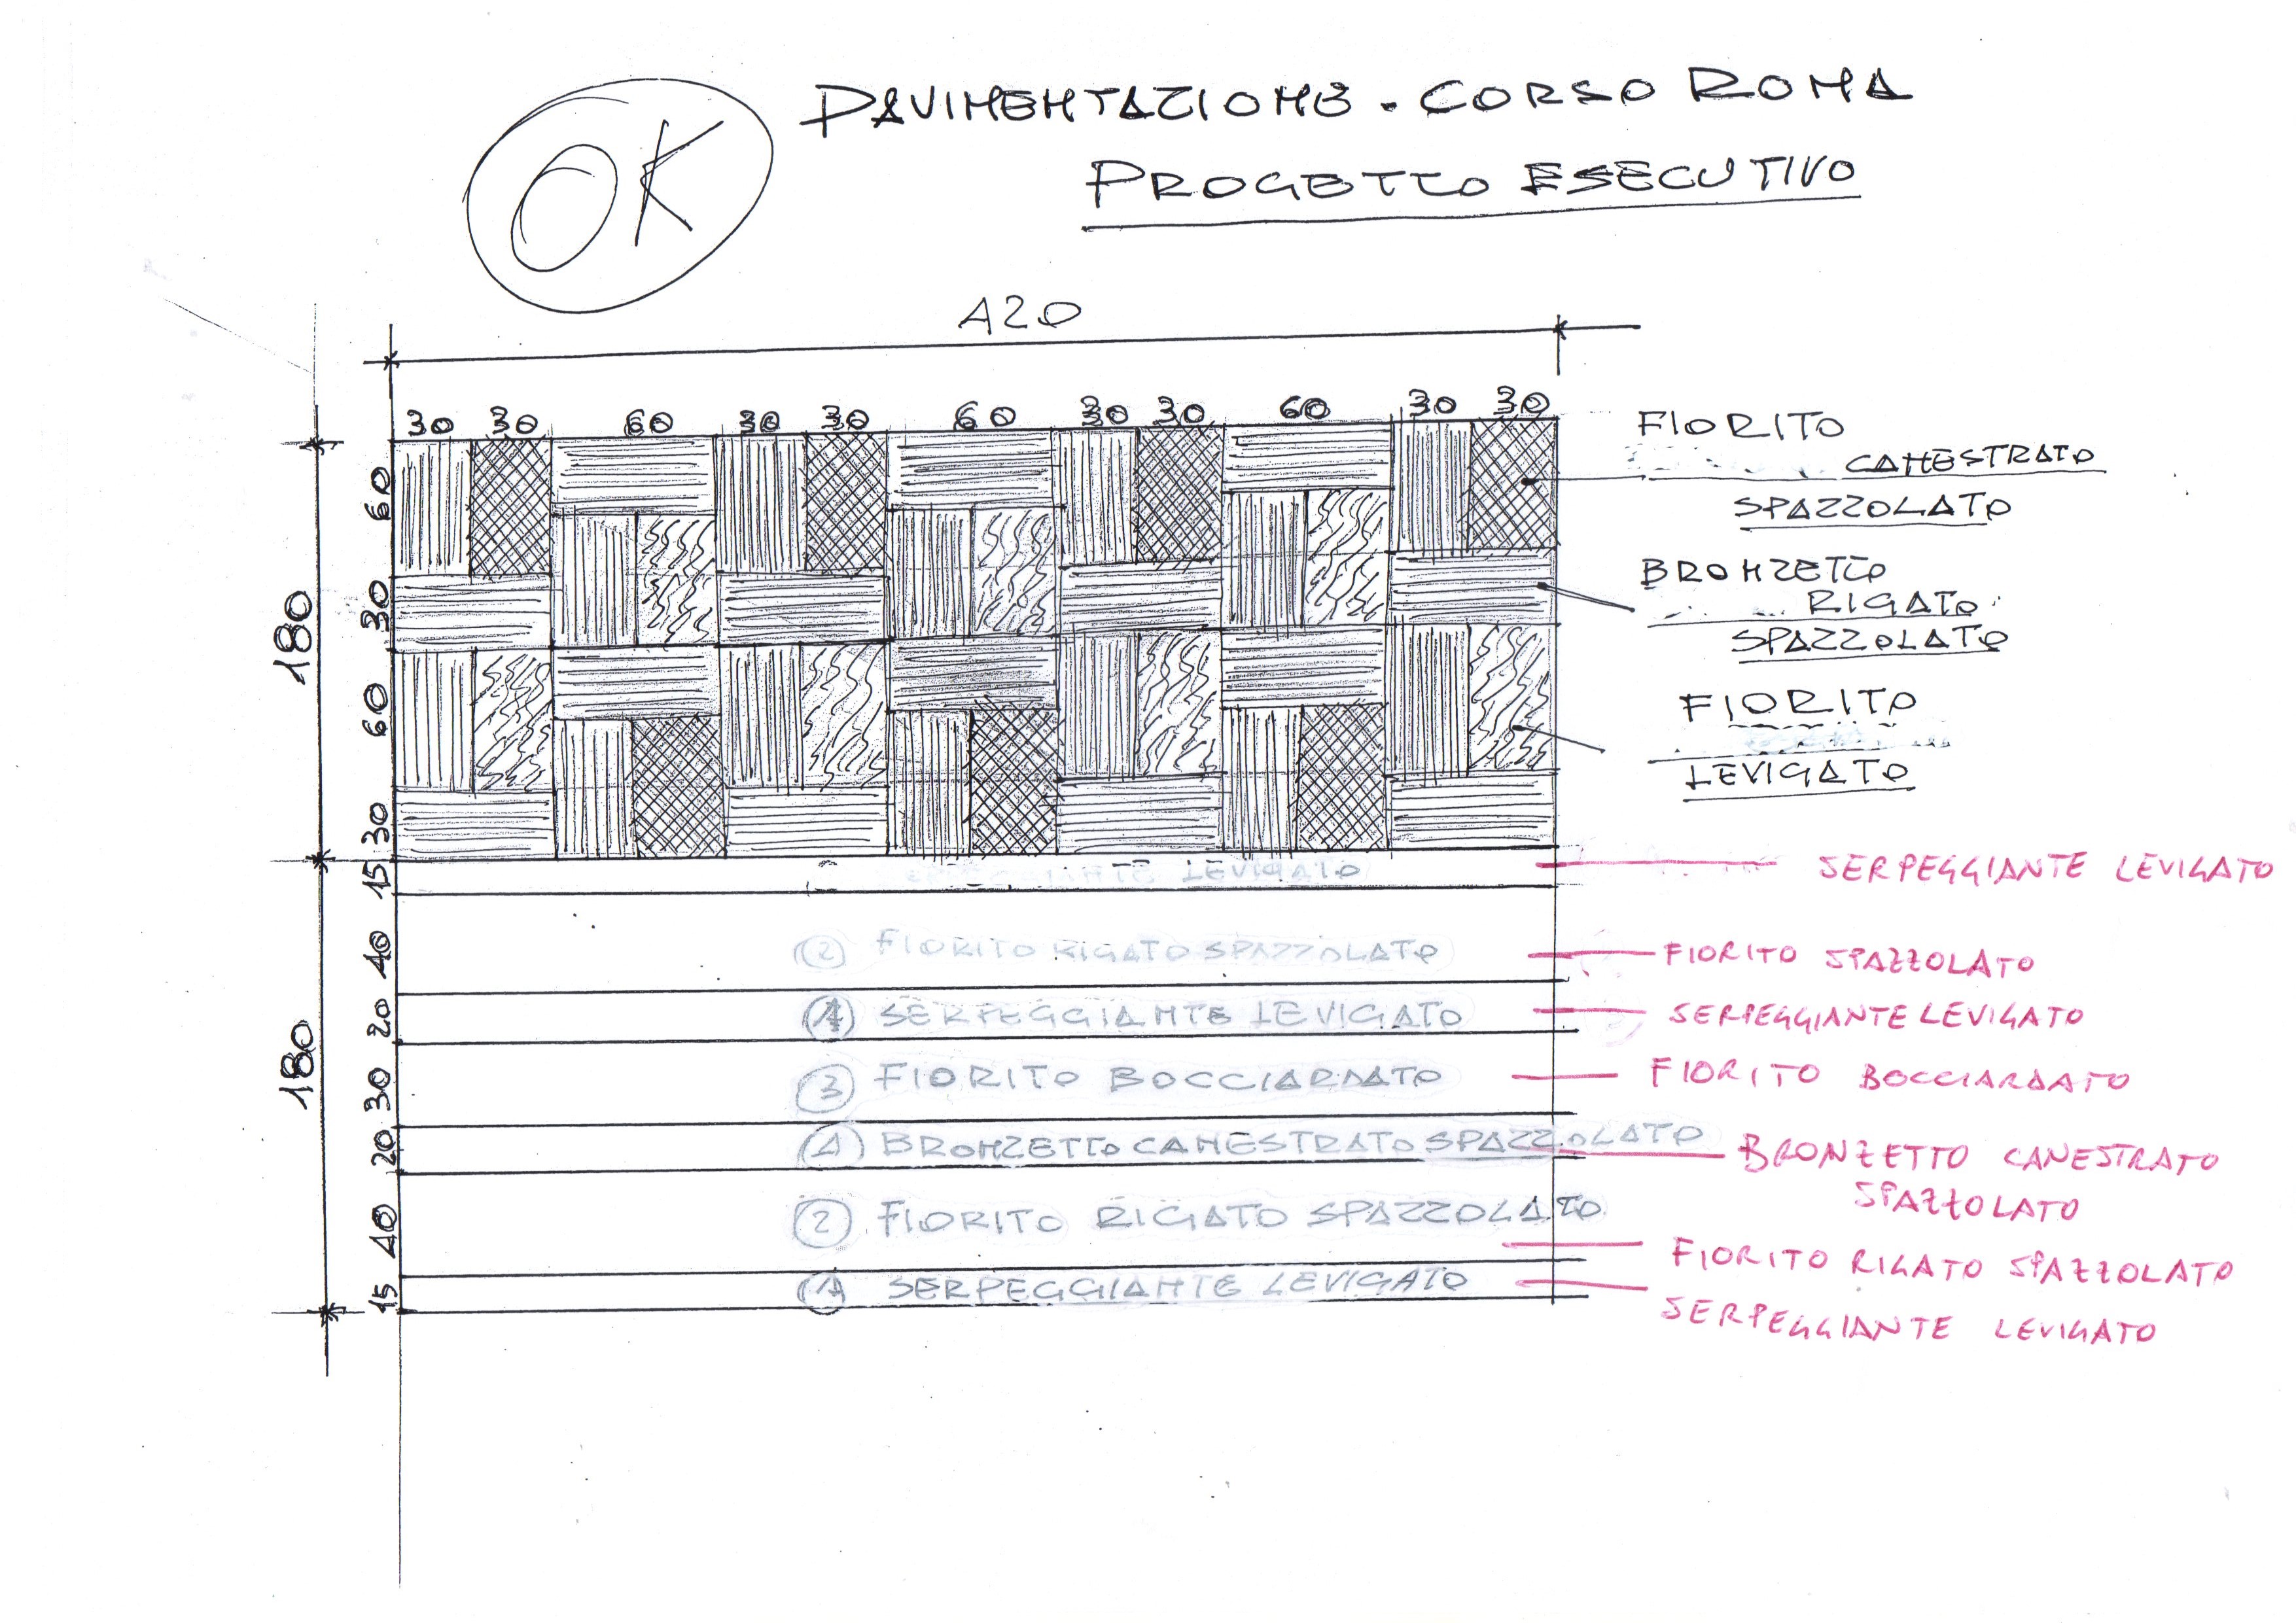 OK
PAVIMENTAZIONE - CORSO ROMA
PROGETTO ESECUTIVO
420
30 30 60 30 30 60 30 30 60 30 30
180
60
30
60
30
FIORITO
CANESTRATO
SPAZZOLATO
BRONZETTO
RIGATO
SPAZZOLATO
FIORITO
LEVIGATO
180
15
LEVIGATO
SERPEGGIANTE LEVIGATO
40
2 FIORITO RIGATO SPAZZOLATO
FIORITO SPAZZOLATO
20
1 SERPEGGIANTE LEVIGATO
SERPEGGIANTE LEVIGATO
30
3 FIORITO BOCCIARDATO
FIORITO BOCCIARDATO
20
BRONZETTO CANESTRATO SPAZZOLATO
BRONZETTO CANESTRATO
SPAZZOLATO
40
2 FIORITO RIGATO SPAZZOLATO
FIORITO RIGATO SPAZZOLATO
15
1 SERPEGGIANTE LEVIGATO
SERPEGGIANTE LEVIGATO